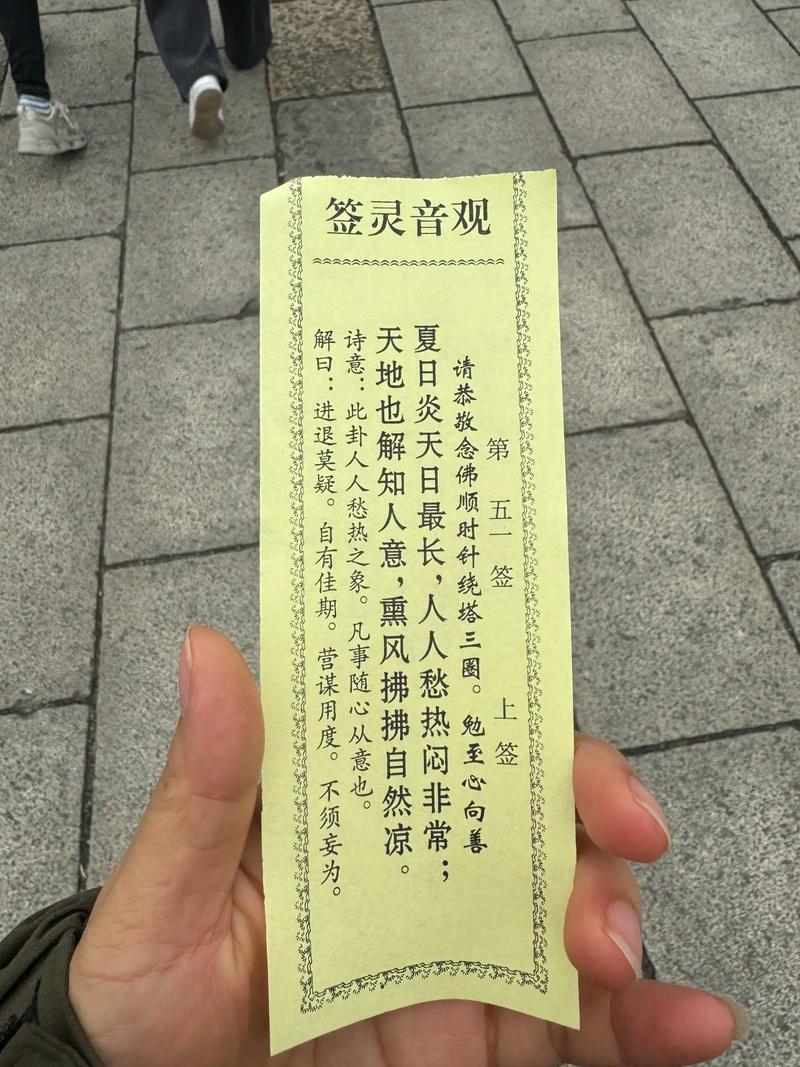 观音灵签
第五一签 上签
请恭敬念佛顺时针绕塔三圈。勉至心向善
夏日炎天日最长，人人愁热闷非常；
天地也解知人意，熏风拂拂自然凉。
诗意：此卦人人愁热之象。凡事随心从意也。
解曰：进退莫疑。自有佳期。营谋用度。不须妄为。